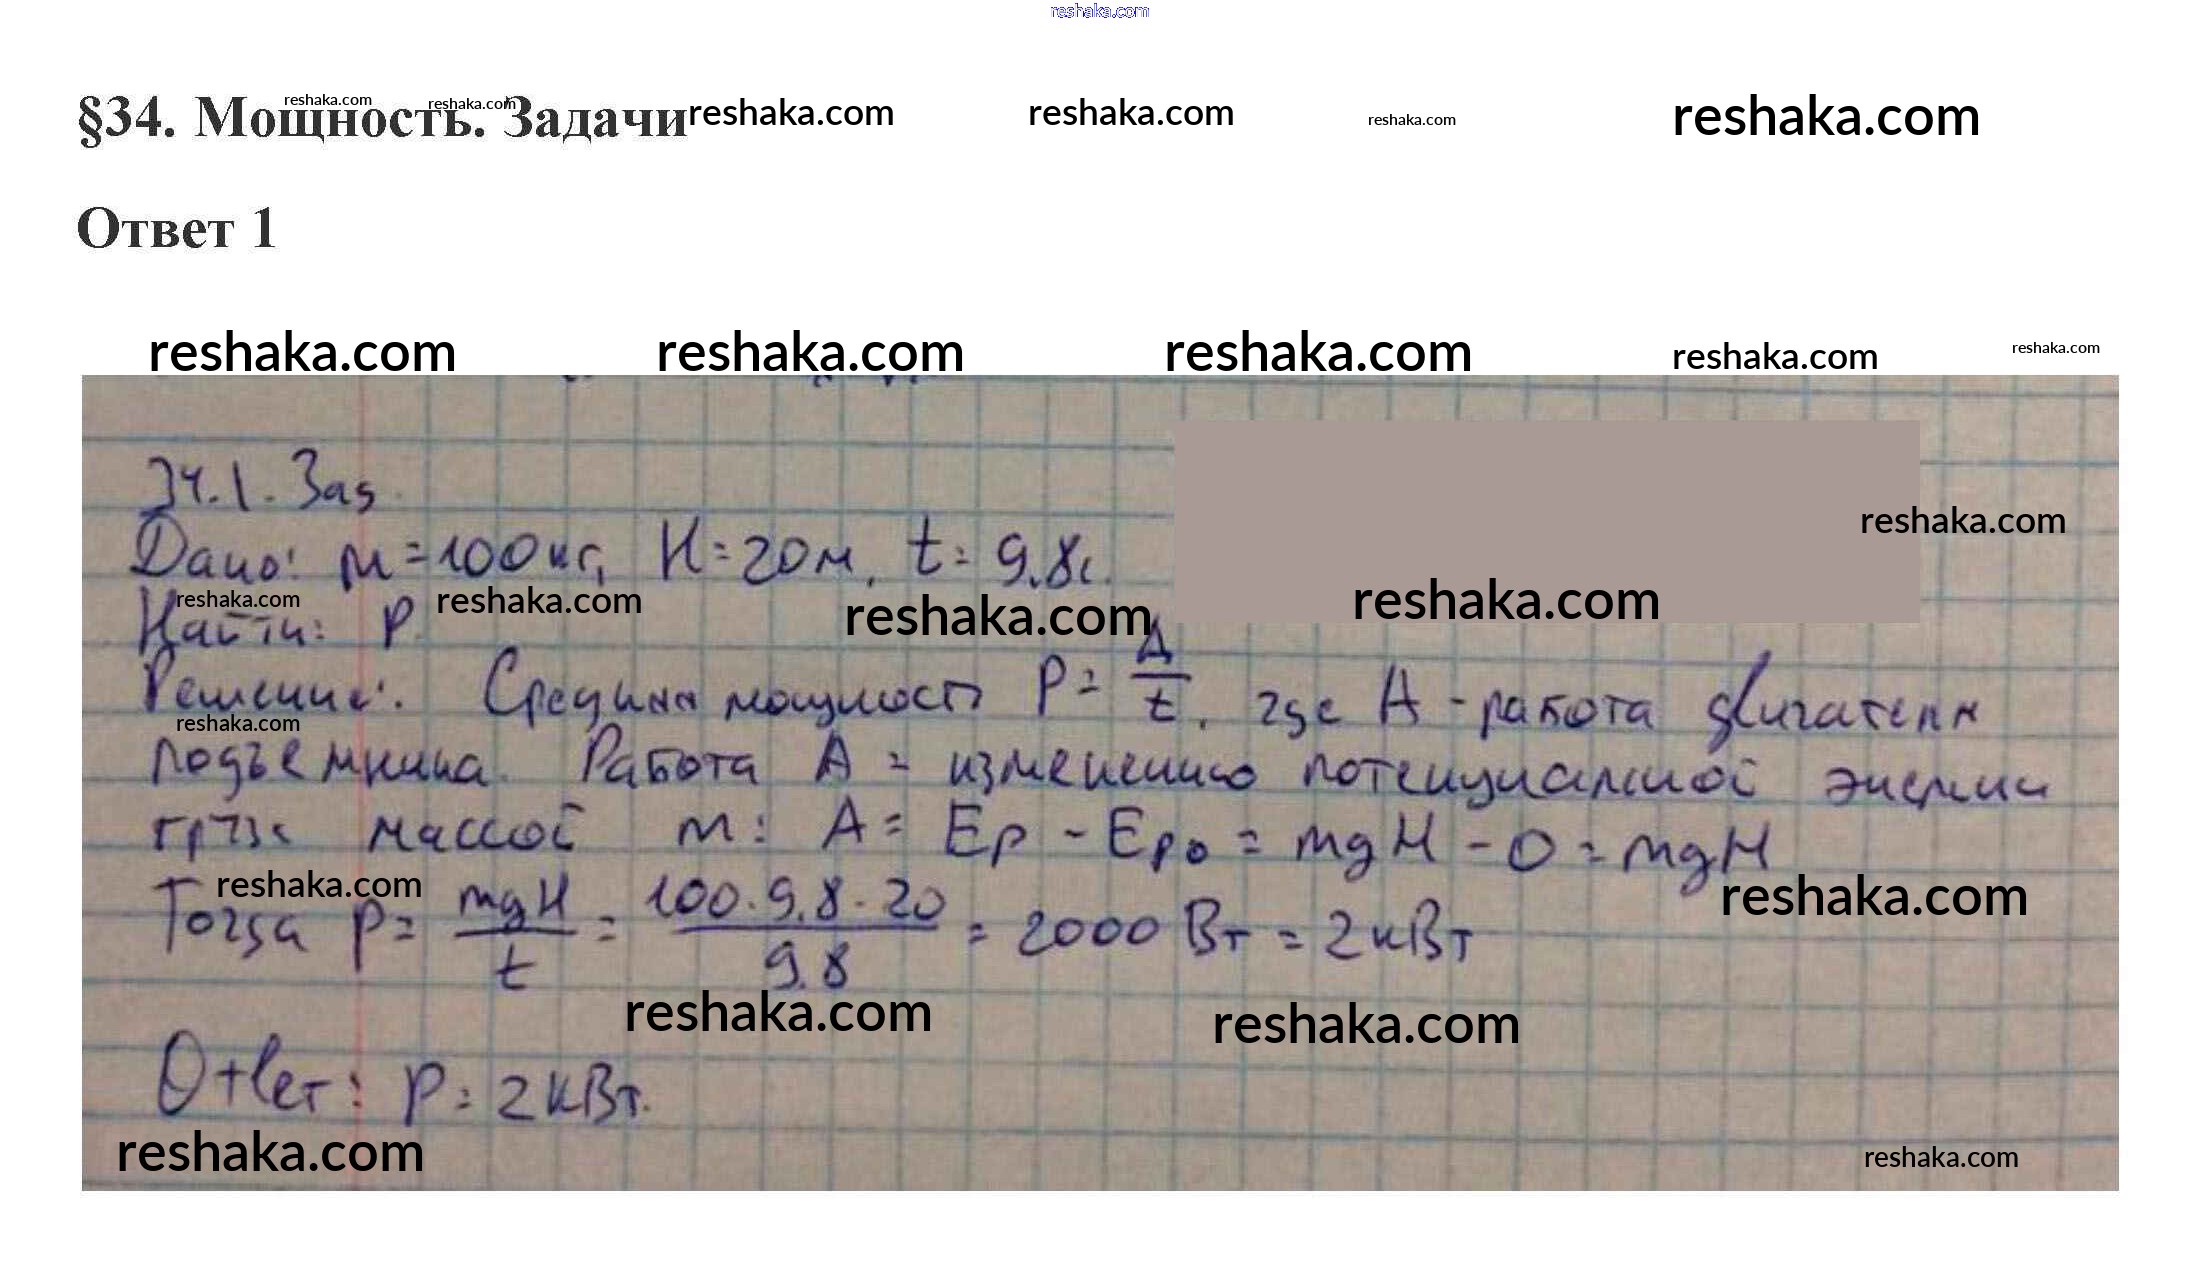 reshaka.com
§34. Мощность. Задачи
reshaka.com reshaka.com reshaka.com reshaka.com reshaka.com reshaka.com
Ответ 1
reshaka.com reshaka.com reshaka.com reshaka.com reshaka.com
34.1. Зад.
reshaka.com
Дано: m=100кг, H=20м, t=9,8с.
reshaka.com reshaka.com reshaka.com reshaka.com
Найти: P.
Решение: Средняя мощность P = A/t, где A - работа двигателя
reshaka.com
подъемника. Работа A = изменению потенциальной энергии
груза массой m: A = Ep - Ep0 = mgH - 0 = mgH
reshaka.com reshaka.com
Тогда P = mgH/t = 100·9,8·20/9,8 = 2000 Вт = 2 кВт
reshaka.com reshaka.com
Ответ: P = 2 кВт.
reshaka.com reshaka.com